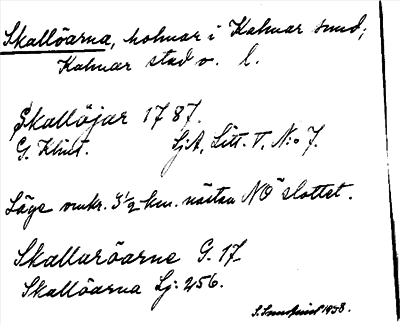 Skallöarna, holmar i Kalmar sund,
Kalmar stad o. l.
Skallöjar 1787.
G. Klint. SjA, Litt. V, N:o 7.
Läge omkr. 3½ km. nästan NO slottet.
Skallaröarne G. 17
Skallöarna Sj: 256.
1938.